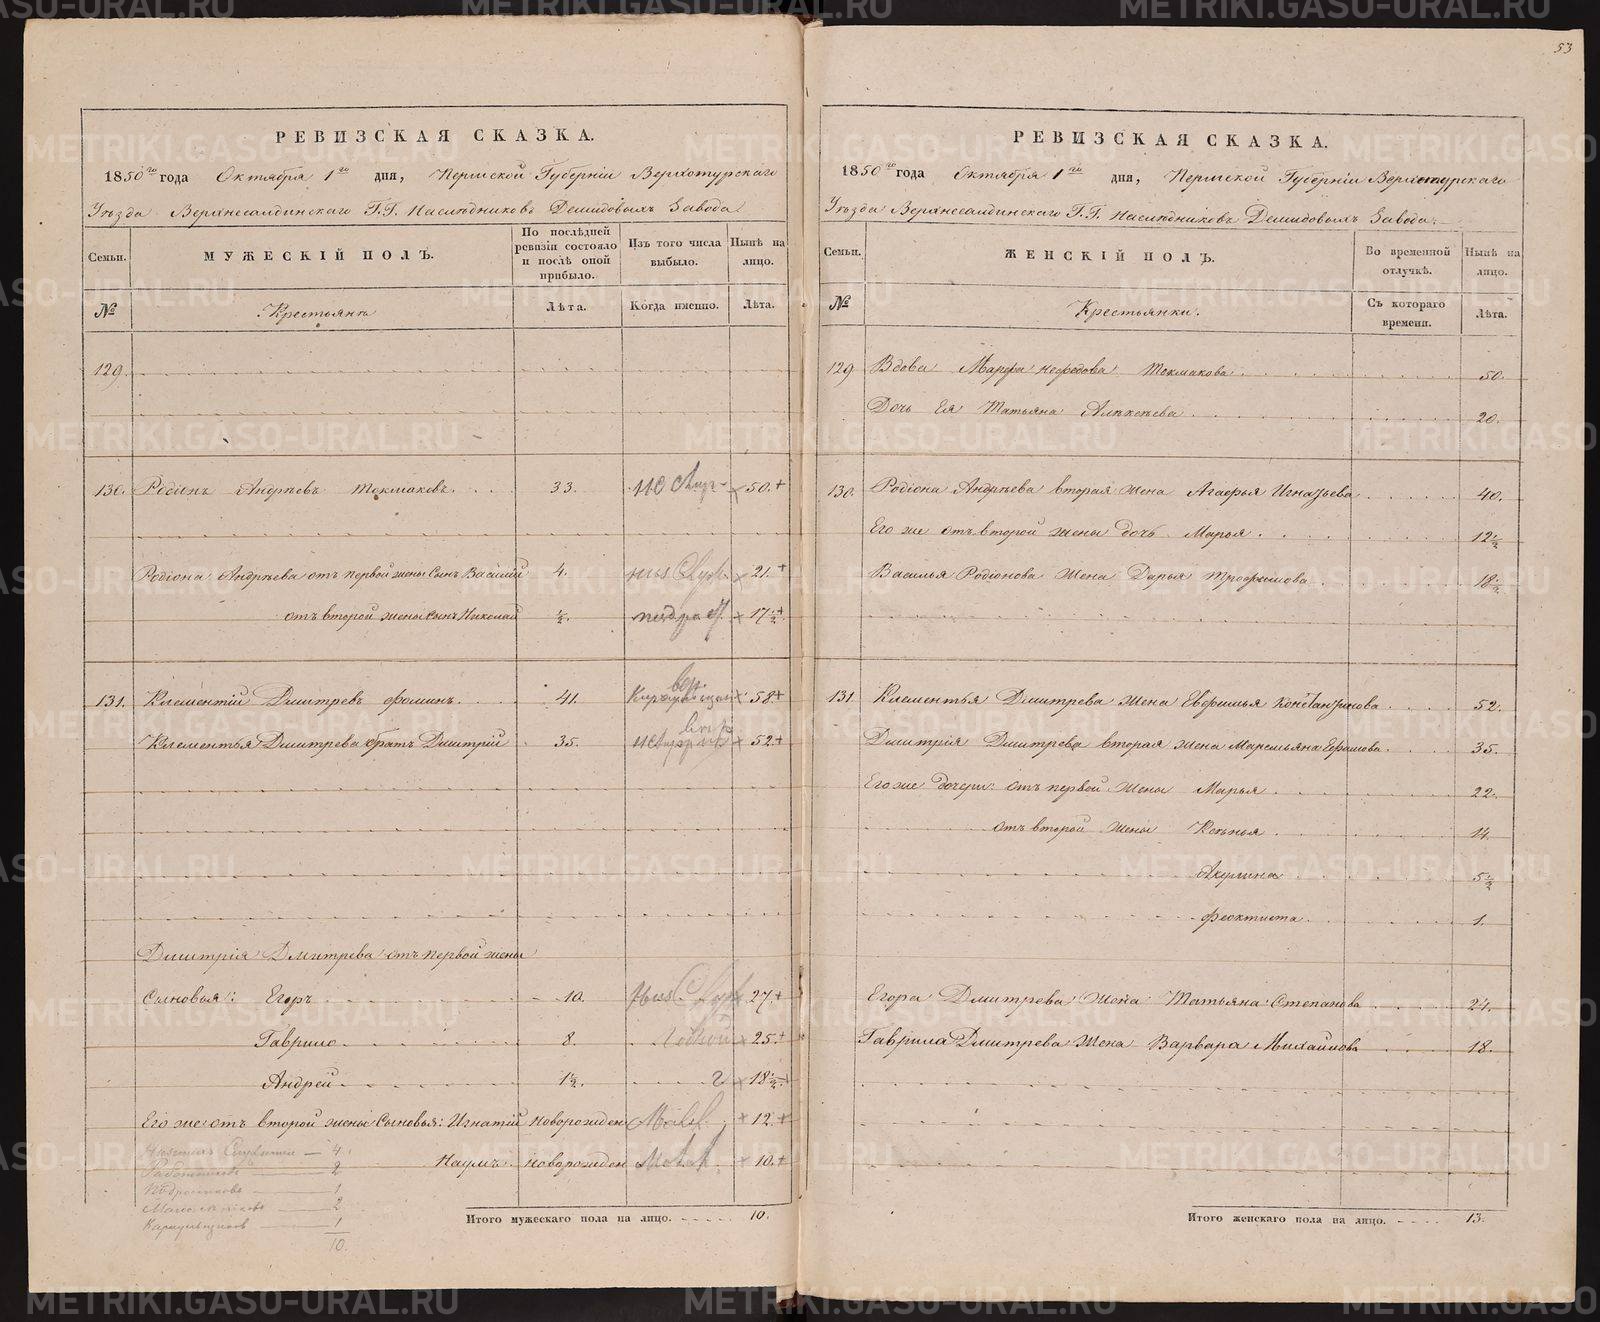 53
РЕВИЗСКАЯ СКАЗКА.
1850го года Октября 1го дня, Пермской Губернiи Верхотурскаго
Уѣзда Верхнесалдинскаго Г.Г. Наслѣдниковъ Демидовыхъ Завода
Семьи. МУЖЕСКIЙ ПОЛЪ. По послѣдней ревизiи состояло и послѣ оной прибыло. Изъ того числа выбыло. Нынѣ на лицо.
№ Крестьянъ Лѣта. Когда именно. Лѣта.
129.
130. Родiонъ Андрѣевъ Токмаковъ. 33. 50.+
Родiона Андрѣева отъ первой жены сынъ Василiй 4. 21.+
отъ второй жены сынъ Николай ½. 17½.+
131. Клементiй Дмитревъ Фоминъ. 41. 58+
Клементья Дмитрева братъ Дмитрiй 35. 52.+
Дмитрiя Дмитрева отъ первой жены
Сыновья: Егоръ 10. 27.+
Гаврило 8. 25.+
Андрей 1½. 18½.+
Его же отъ второй жены Сыновья: Игнатiй новорожден 12.+
Наумъ. новорожден 10.+
4
2
Подростковъ 1
2
Караульщиковъ 1
10.
Итого мужескаго пола на лицо. 10.
РЕВИЗСКАЯ СКАЗКА.
1850го года Октября 1го дня, Пермской Губернiи Верхотурскаго
Уѣзда Верхнесалдинскаго Г.Г. Наслѣдниковъ Демидовыхъ Завода.
Семьи. ЖЕНСКIЙ ПОЛЪ. Во временной отлучкѣ. Нынѣ на лицо.
№ Крестьянки. Съ котораго времени. Лѣта.
129 Вдова Марфа Нефедова Токмакова 50.
Дочь Ея Татьяна Алѣксѣева 20.
130. Родiона Андрѣева вторая жена Агафья Игнатьева 40.
Его же отъ второй жены дочь Марья 12½
Василья Родiонова жена Дарья Трофимова 18½
131. Клементья Дмитрева жена Евфимья Константинова 52.
Дмитрiя Дмитрева вторая жена Маремьяна Ефимова 35.
Его же дочери: отъ первой жены Марья 22.
отъ второй жены Ксенья 14.
Акулина 5½
Феоктиста 1.
Егора Дмитрева Жена Татьяна Степанова 24.
Гаврила Дмитрева Жена Варвара Михайлова 18.
Итого женскаго пола на лицо. 13.
METRIKI.GASO-URAL.RU